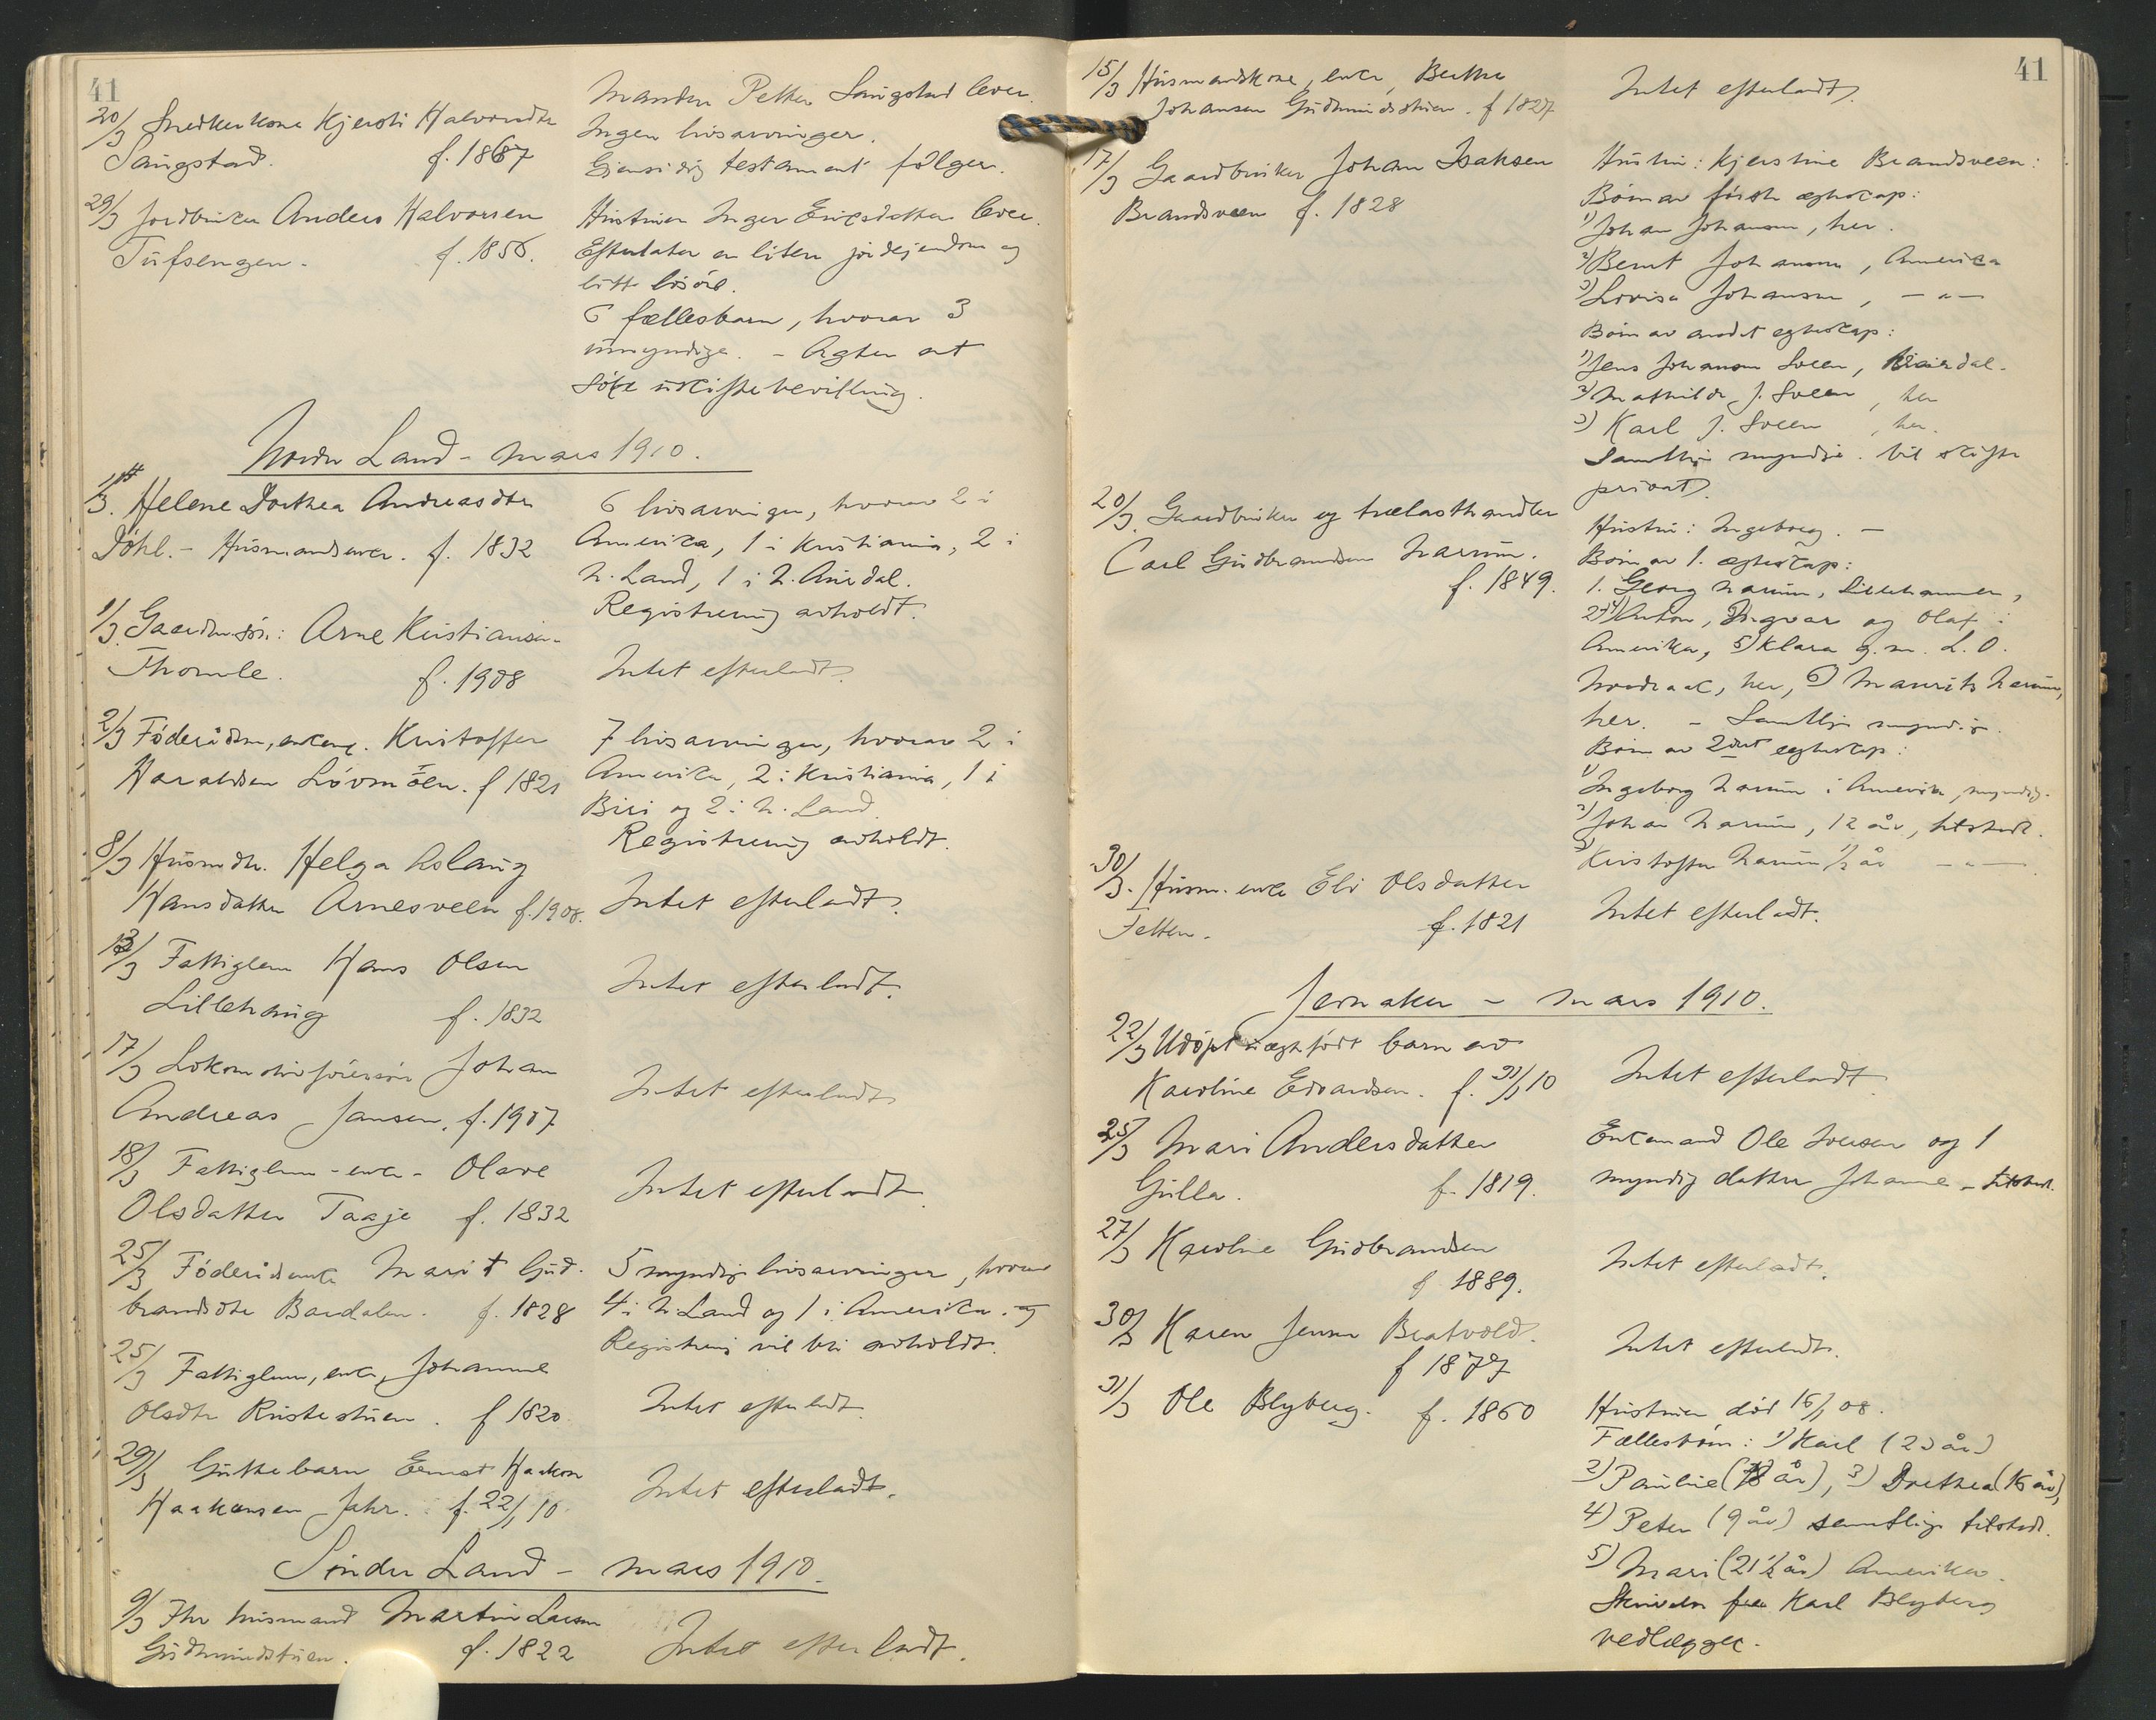 41
20/3 Snedkerkone Kjersti Halvorsdtr
Saugstad. f. 1867
Manden Petter Saugstad lever.
Ingen livsarvinger.
Gjensidig testament følger.
29/3 Jordbruker Anders Halvorsen
Tufsengen. f. 1856.
Hustruen Inger Ericsdatter lever.
Efterlater en liten jordejendom og
litt løsøre.
6 fællesbarn, hvorav 3
umyndige. - Agter at
søke uskiftebevilling.
Nordre Land - mars 1910.
1/3. Helene Dorthea Andreasdtr
Döhl. - Husmandsenke. f. 1832
6 livsarvinger, hvorav 2 i
Amerika, 1 i Kristiania, 2 i
N. Land, 1 i N. Aurdal.
Registrering avholdt.
1/3. Gaardm. søn: Arne Kristiansen
Thomle. f. 1908
Intet efterladt.
2/3 Föderådsm., enkem. Kristoffer
Haraldsen Lövmoen. f 1821
7 livsarvinger, hvorav 2 i
Amerika, 2 i Kristiania, 1 i
Biri og 2 i N. Land.
Registrering avholdt.
8/3 Husmdtr. Helga Aslaug
Hansdatter Arnesveen f. 1908.
Intet efterladt.
13/3 Fattiglem Hans Olsen
Lillehaug f. 1832
Intet efterladt.
17/3 Lokomotivförersön Johan
Andreas Jansen, f. 1907
Intet efterladt
18/3 Fattiglem - enke - Olave
Olsdatter Taaje f. 1832
Intet efterladt.
25/3 Föderådsenke Marit Gud-
brandsdtr Bardalen. f. 1828
5 myndige livsarvinger, hvorav
4 i N. Land og 1 i Amerika.
Registrering vil bli avholdt.
25/3 Fattiglem, enke, Johanne
Olsdtr Rustestuen. f 1820
Intet efterladt.
29/3 Guttebarn Ernst Haakon
Haakensen Jahr. f. 22/1 10.
Intet efterladt.
Søndre Land - mars 1910.
9/3 Fhv husmand Martin Larsen
Gudmundstuen. f. 1822
Intet efterladt.
41
15/3 Husmandskone, enke, Berthe
Johansen Gudmundsstuen. f 1827
Intet efterladt.
17/3 Gaardbruker Johan Isaksen
Brandsveen f. 1828
Hustru: Kjerstine Brandsveen:
Børn av første egteskap:
1) Johan Johansen, her.
2) Bernt Johansen, Amerika
3) Lovise Johansen, - " -
Børn av andet egteskap:
1) Jens Johansen Sveen,
2) Mathilde J. Sveen, her
3) Karl J. Sveen, her.
Samtlige myndige. Vil skifte
privat.
20/3 Gaardbruker og trælasthandler
Carl Gudbrandsen Narum.
f. 1849.
Hustru: Ingeborg. -
Børn av 1. egteskap:
1. Georg Narum, Lillehammer,
2-4) Anton, Ingvar og Olaf i
Amerika, 5) Klara g. m. L. O.
Nordraak, her, 6) Maurits Narum,
her. - Samtlige myndige.
Børn av 2det egteskap:
1) Ingeborg Narum i Amerika, myndig.
2) Johan Narum, 12 år, tilstede.
3) Kristoffer Narum 1/2 år - " -
30/3. Husm. enke Eli Olsdatter
Fetten. f. 1821
Intet efterladt.
Jevnaker - mars 1910.
22/3 Udöpt uegtefödt barn av
Karoline Edvardsen. f. 21/3 10
Intet efterladt
25/3 Mari Andersdatter
Gulla. f. 1819.
Enkemand Ole Iversen og 1
myndig datter Johanne - tilstede.
27/3 Karoline Gudbrandsen
f 1889.
Intet efterladt.
30/3 Karen Jensen Bratvold.
f 1877
Intet efterladt.
31/3 Ole Blyberg. f. 1860
Hustruen död 16/1 08.
Fællesbörn: 1) Karl (23 år)
2) Pauline (18 år), 3) Dorthea (16 år),
4) Peter (9 år) samtlige tilstede.
5) Mari (21 1/2 år) Amerika.
Skrivelse fra Karl Blyberg
vedlægges.